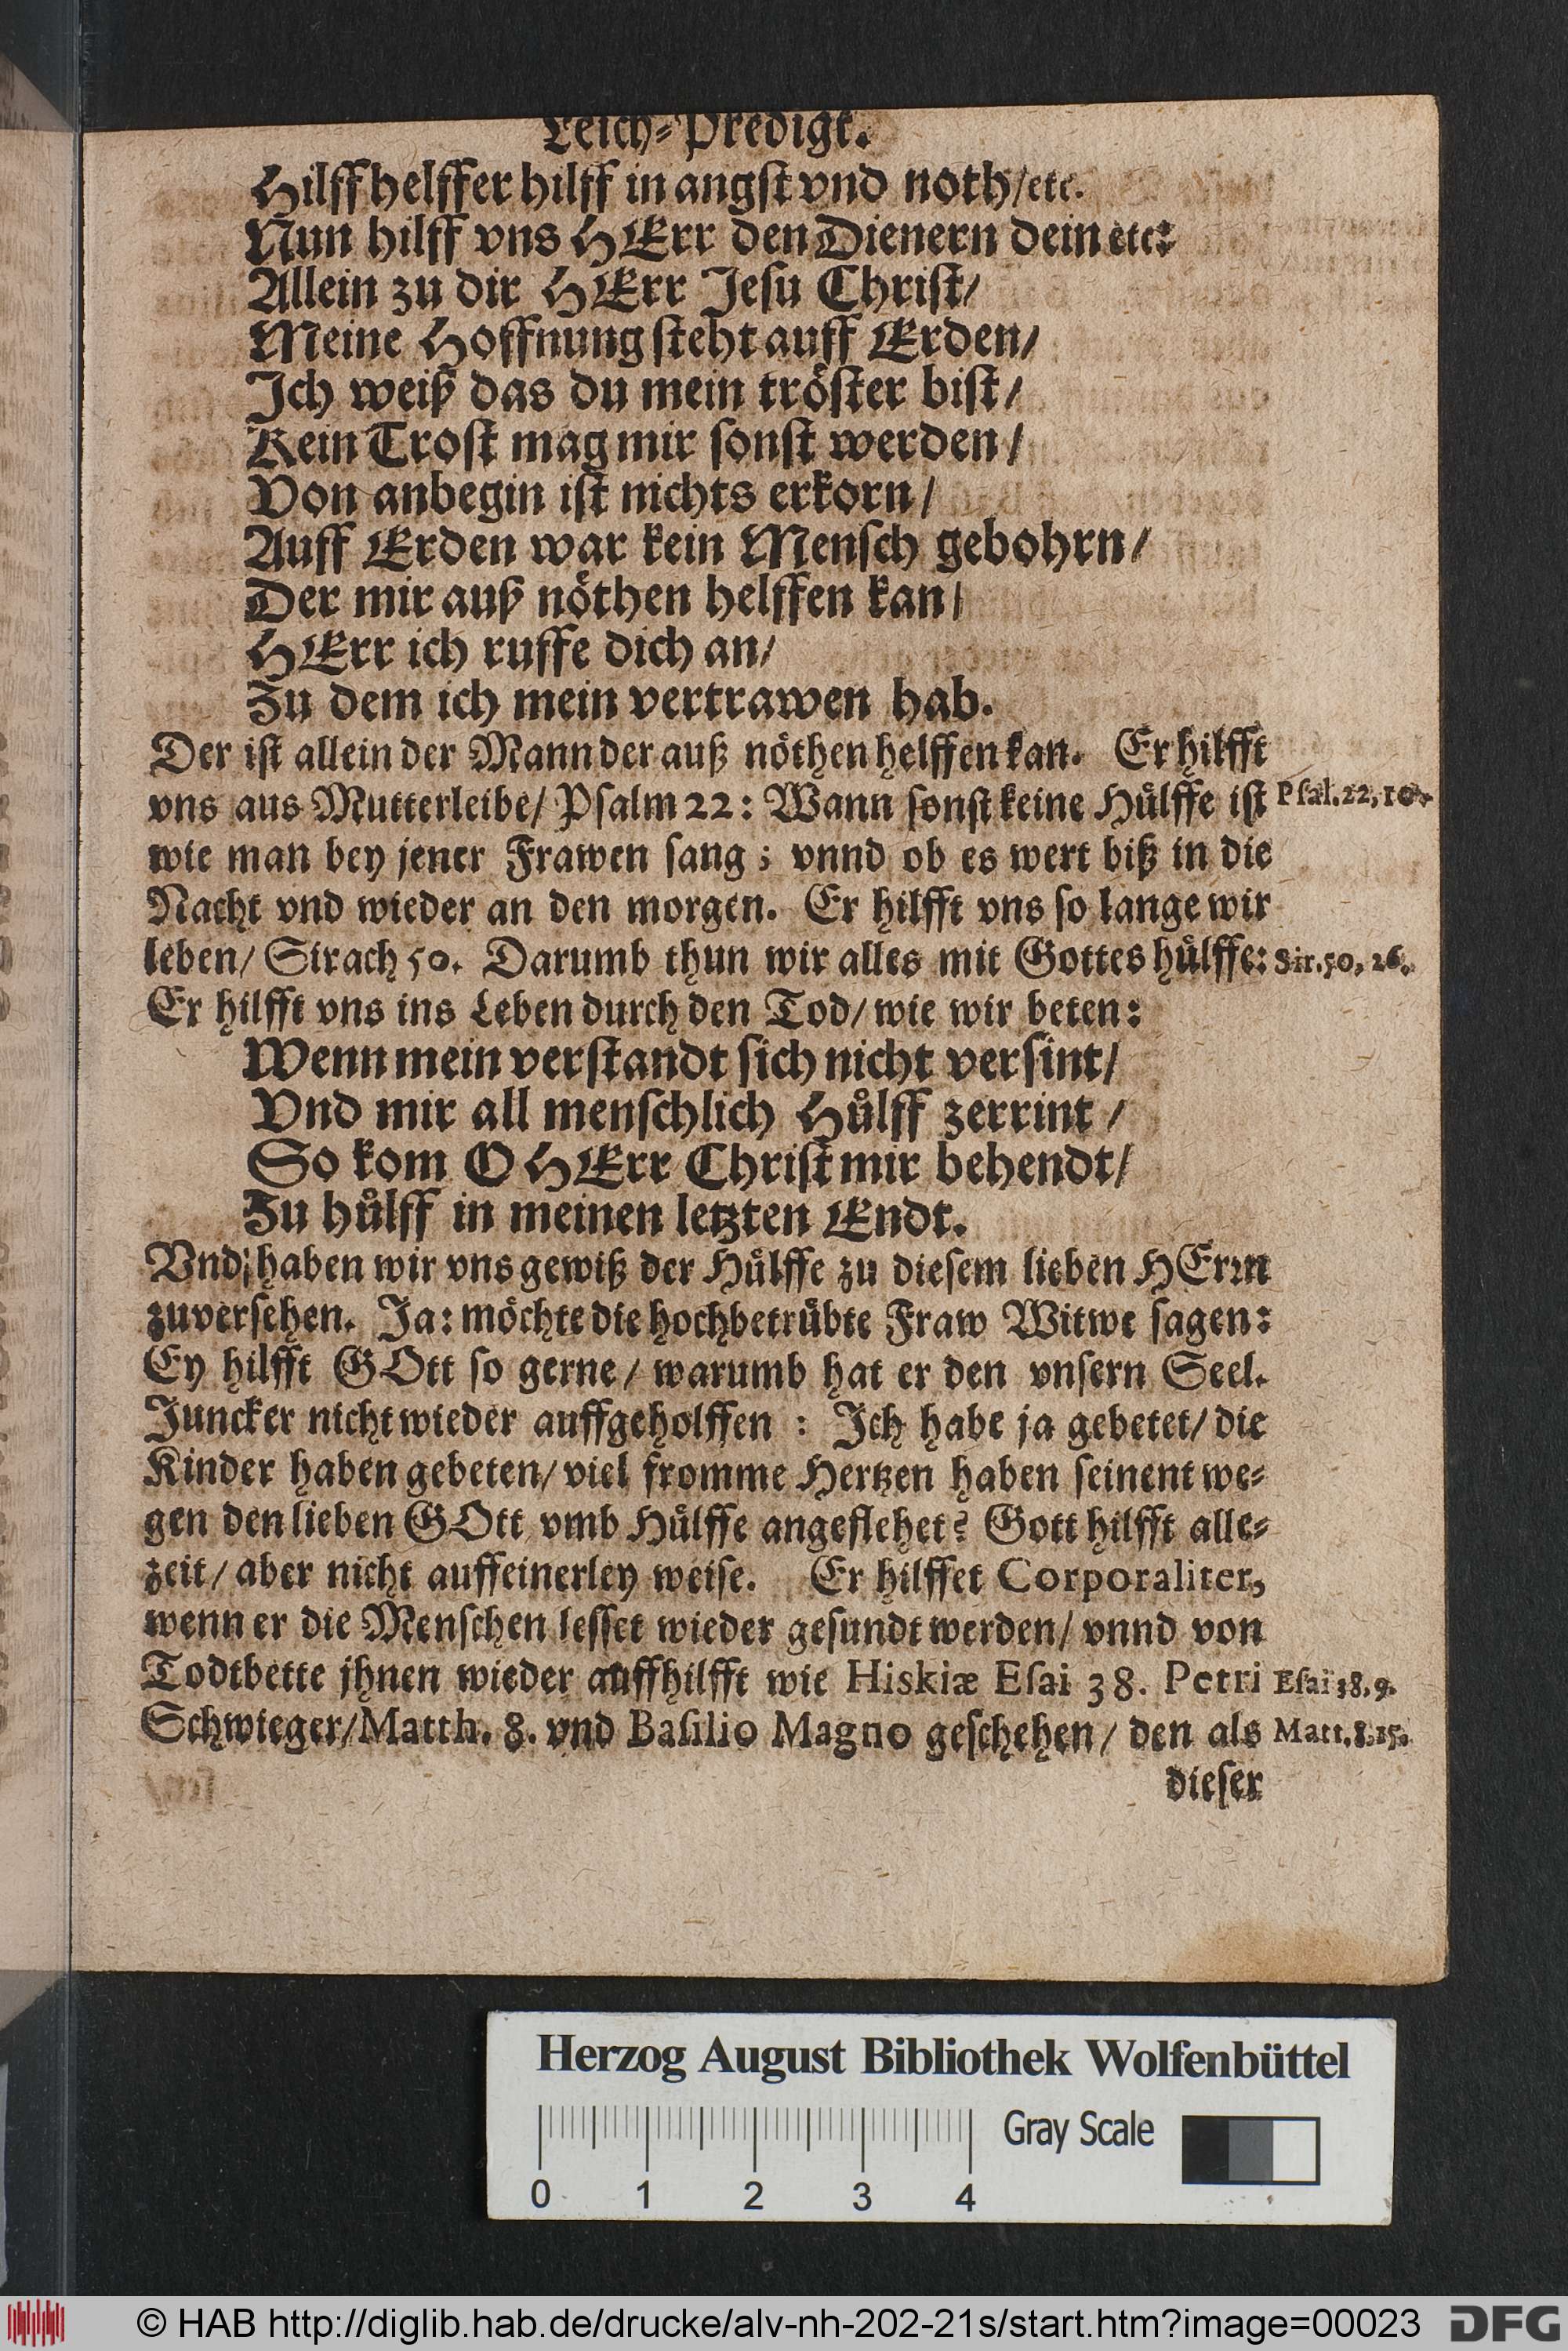 Leich-Predigt.
Hilff helffer hilff in angſt vnd noth/etc.
Nun hilff vns HErr den Dienern dein etc:
Allein zu dir HErr Jeſu Chriſt/
Meine Hoffnung ſteht auff Erden/
Ich weiß das du mein tröſter biſt/
Kein Troſt mag mir ſonſt werden/
Von anbegin iſt nichts erkorn/
Auff Erden war kein Menſch gebohrn/
Der mir auß nöthen helffen kan/
HErr ich ruffe dich an/
Zu dem ich mein vertrawen hab.
Der iſt allein der Mann der auß nöthen helffen kan. Er hilfft
vns aus Mutterleibe/ Pſalm 22: Wann ſonſt keine Huͤlffe iſt Pſal.22,10.
wie man bey jener Frawen ſang; vnnd ob es wert biß in die
Nacht vnd wieder an den morgen. Er hilfft vns ſo lange wir
leben/ Sirach 50. Darumb thun wir alles mit Gottes huͤlffe: Sir.50, 26.
Er hilfft vns ins Leben durch den Tod/ wie wir beten:
Wenn mein verſtandt ſich nicht verſint/
Vnd mir all menſchlich Huͤlff zerrint /
So kom O HErr Chriſt mir behendt/
Zu huͤlff in meinen letzten Endt.
Vnd haben wir vns gewiß der Huͤlffe zu dieſem lieben HErꝛn
zuverſehen. Ja: möchte die hochbetruͤbte Fraw Witwe ſagen:
Ey hilfft GOtt ſo gerne/ warumb hat er den vnſern Seel.
Juncker nicht wieder auffgeholffen : Ich habe ja gebetet/ die
Kinder haben gebeten/ viel fromme Hertzen haben ſeinent we-
gen den lieben GOtt vmb Huͤlffe angeflehet? Gott hilfft alle-
zeit/ aber nicht auff einerley weiſe. Er hilffet Corporaliter,
wenn er die Menſchen leſſet wieder geſundt werden/ vnnd von
Todtbette jhnen wieder auffhilfft wie Hiskiæ Eſai 38. Petri Eſai 38.9.
Schwieger/Matth. 8. vnd Baſilio Magno geſchehen/ den als Matt.8.15.
dieſer
Herzog August Bibliothek Wolfenbüttel
Gray Scale
0 1 2 3 4
© HAB http://diglib.hab.de/drucke/alv-nh-202-21s/start.htm?image=00023 DFG